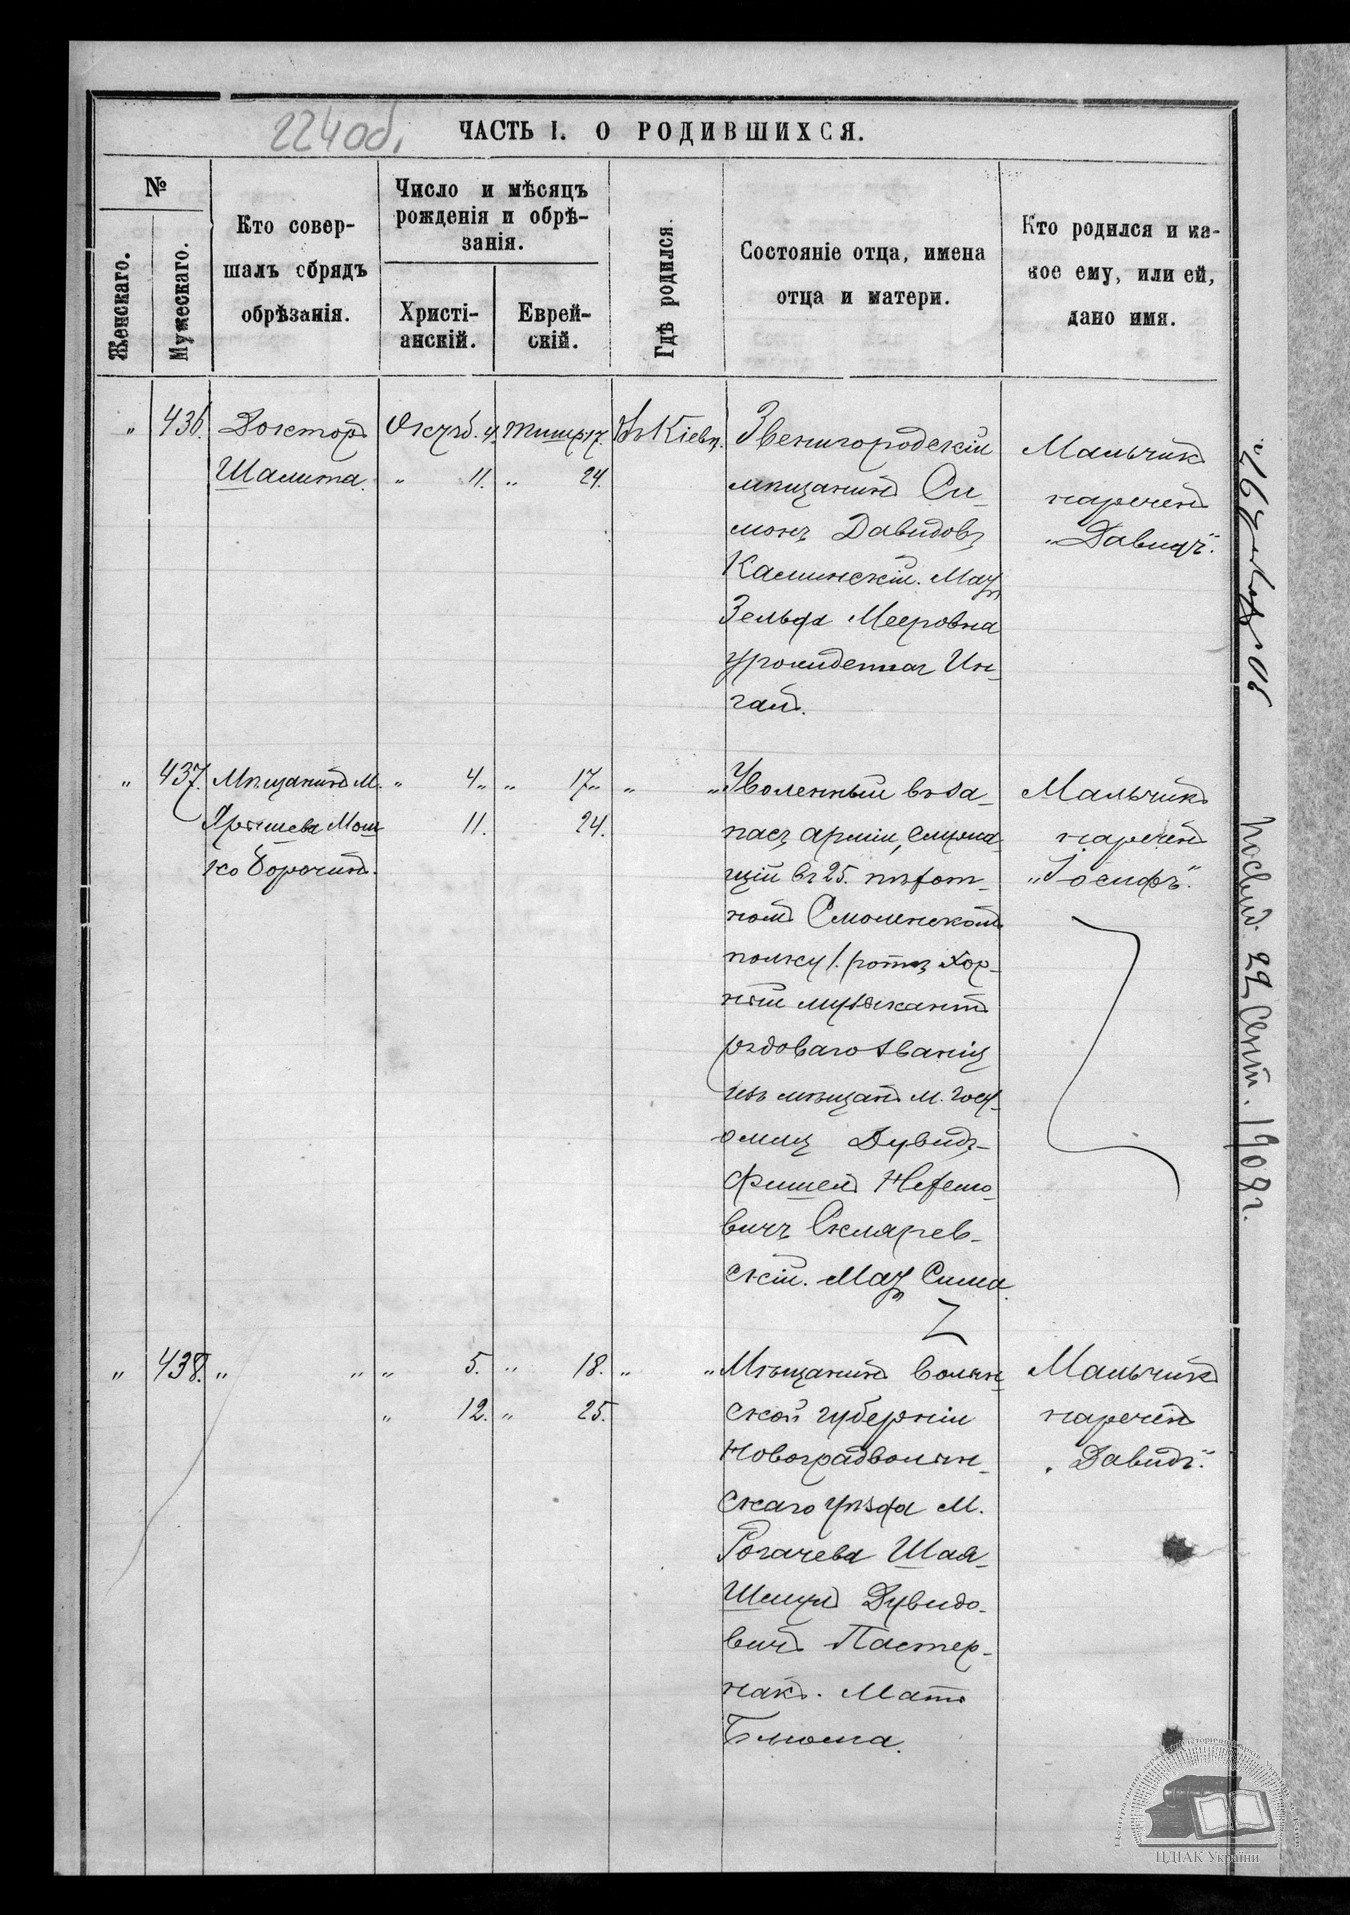 224об.
ЧАСТЬ I. О РОДИВШИХСЯ.
№
Женскаго.
Мужескаго.
Кто совер-
шалъ обрядъ
обрѣзанія.
Число и мѣсяцъ
рожденія и обрѣ-
занія.
Христі-
анскій.
Еврей-
скій.
Гдѣ родился
Состояніе отца, имена
отца и матери.
Кто родился и ка-
кое ему, или ей,
дано имя.
„ 436. Докторъ
Шалита.
Октяб. 4. Тишр. 17.
„ 11. „ 24.
Въ Кіевѣ.
Звенигородскій
мѣщанинъ Си-
монъ Давидовъ
Каминскій. Мать
Зельда Мееровна
урожденная
Мальчикъ
нареченъ
„Давидъ“.
„ 437. Мѣщанинъ М.
Мош-
ко Борочинъ.
„ 4. „ 17. „ „
11. 24.
Уволенный въ за-
пасъ арміи, служа-
щій въ 25. пѣхот-
номъ Смоленскомъ
полку 1. ротѣ Хор-
ный музыкантъ
рядоваго званія
изъ мѣщанъ м.
Дувидъ-
Фишель
вичъ Скляров-
скій. Мать Сима.
Мальчикъ
нареченъ
„Іосифъ“.
„ 438. „ „ „ 5. „ 18. „ „
„ 12. „ 25.
Мѣщанинъ Волын-
ской губерніи
Новоградволын-
скаго уѣзда М.
Рогачева Шая-
Шмулъ Дувидо-
вичъ Пастер-
накъ. Мать
Блюма.
Мальчикъ
нареченъ
„Давидъ“.
22 Сент. 1908 г.
ЦДІАК України